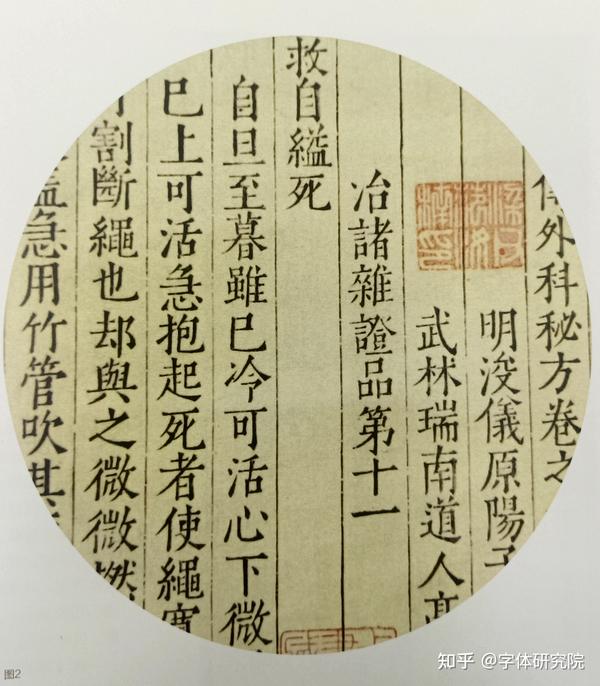 外科秘方卷之
明没儀原陽子
武林瑞南道人高
冶諸雜證品第十一
救自縊死
自旦至暮雖巳冷可活心下微
巳上可活急抱起死者使繩寬
割斷繩也却與之微微撚
急用竹管吹其
图2
知乎 @字体研究院